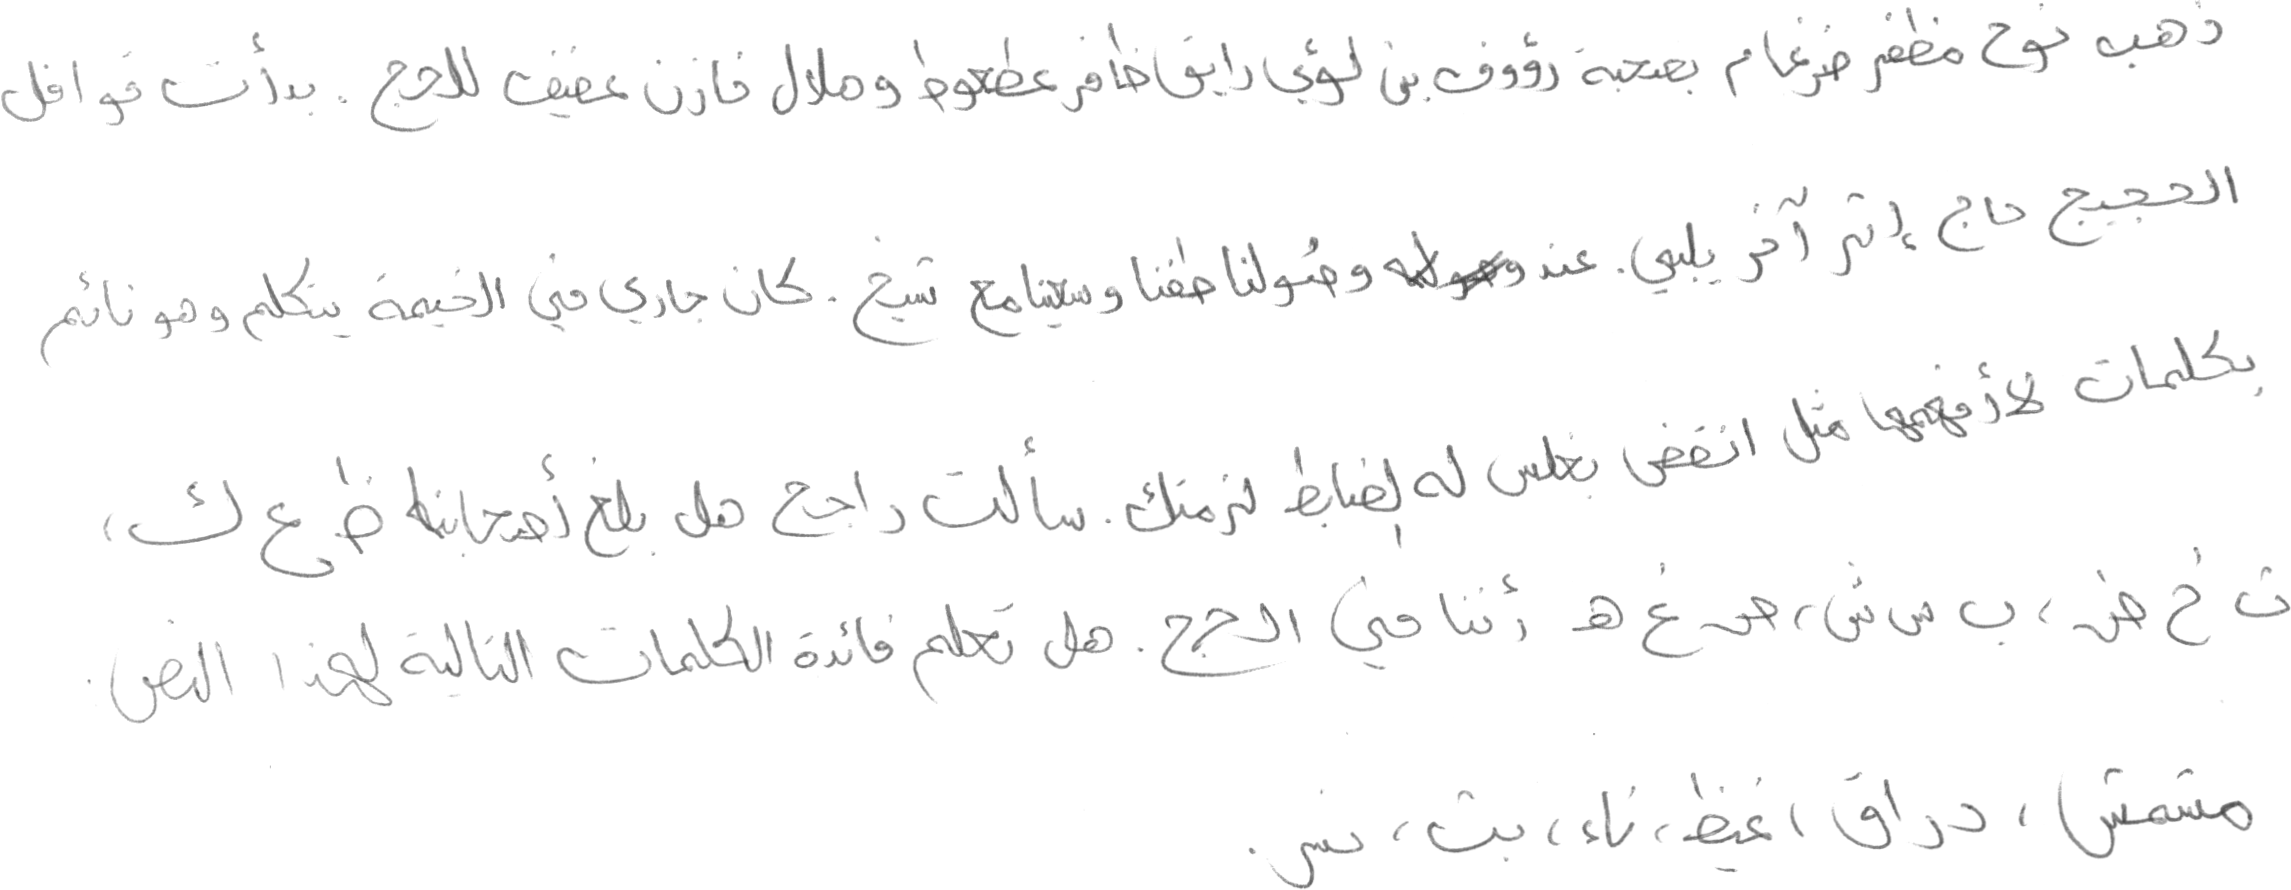 ذهب نوح مظفر ضرغام بصحبة رؤوف بن لؤي رايق ظافر عطعوط وهلال خازن عفيف للحج . بدأت قوافل
الحجيج حاج إثر آخر يلبي . عند وصولنا طفنا وسعينا مع شيخ . كان جاري في الخيمة يتكلم وهو نائم
بكلمات لا أفهمها مثل انقض بغلس له إضابط لزمتك . سألت راجح هل بلغ أصحابنا ظ ع ك ،
ث خ ض ، ب س ش ، ص غ هـ أننا في الحج . هل تعلم فائدة الكلمات التالية لهذا النص .
مشمش ، دراق ، غيظ ، ناء ، بث ، نس .